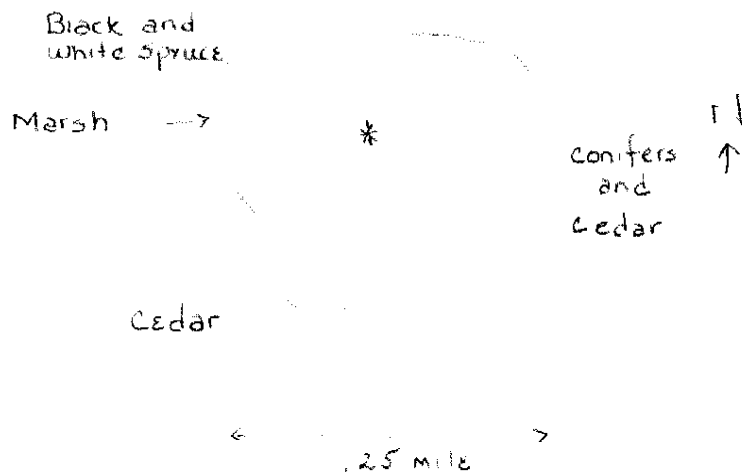 Black and
white spruce
Marsh
*
conifers
and
cedar
Cedar
.25 mile